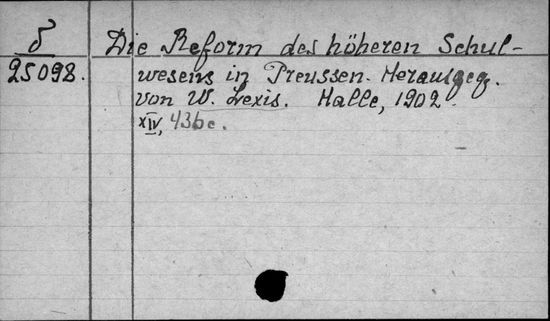 δ Die Reform des höheren Schul-
25098. wesens in Preussen. Herausgeg.
von W. Lexis. Halle, 1902.
XIV, 436 c.